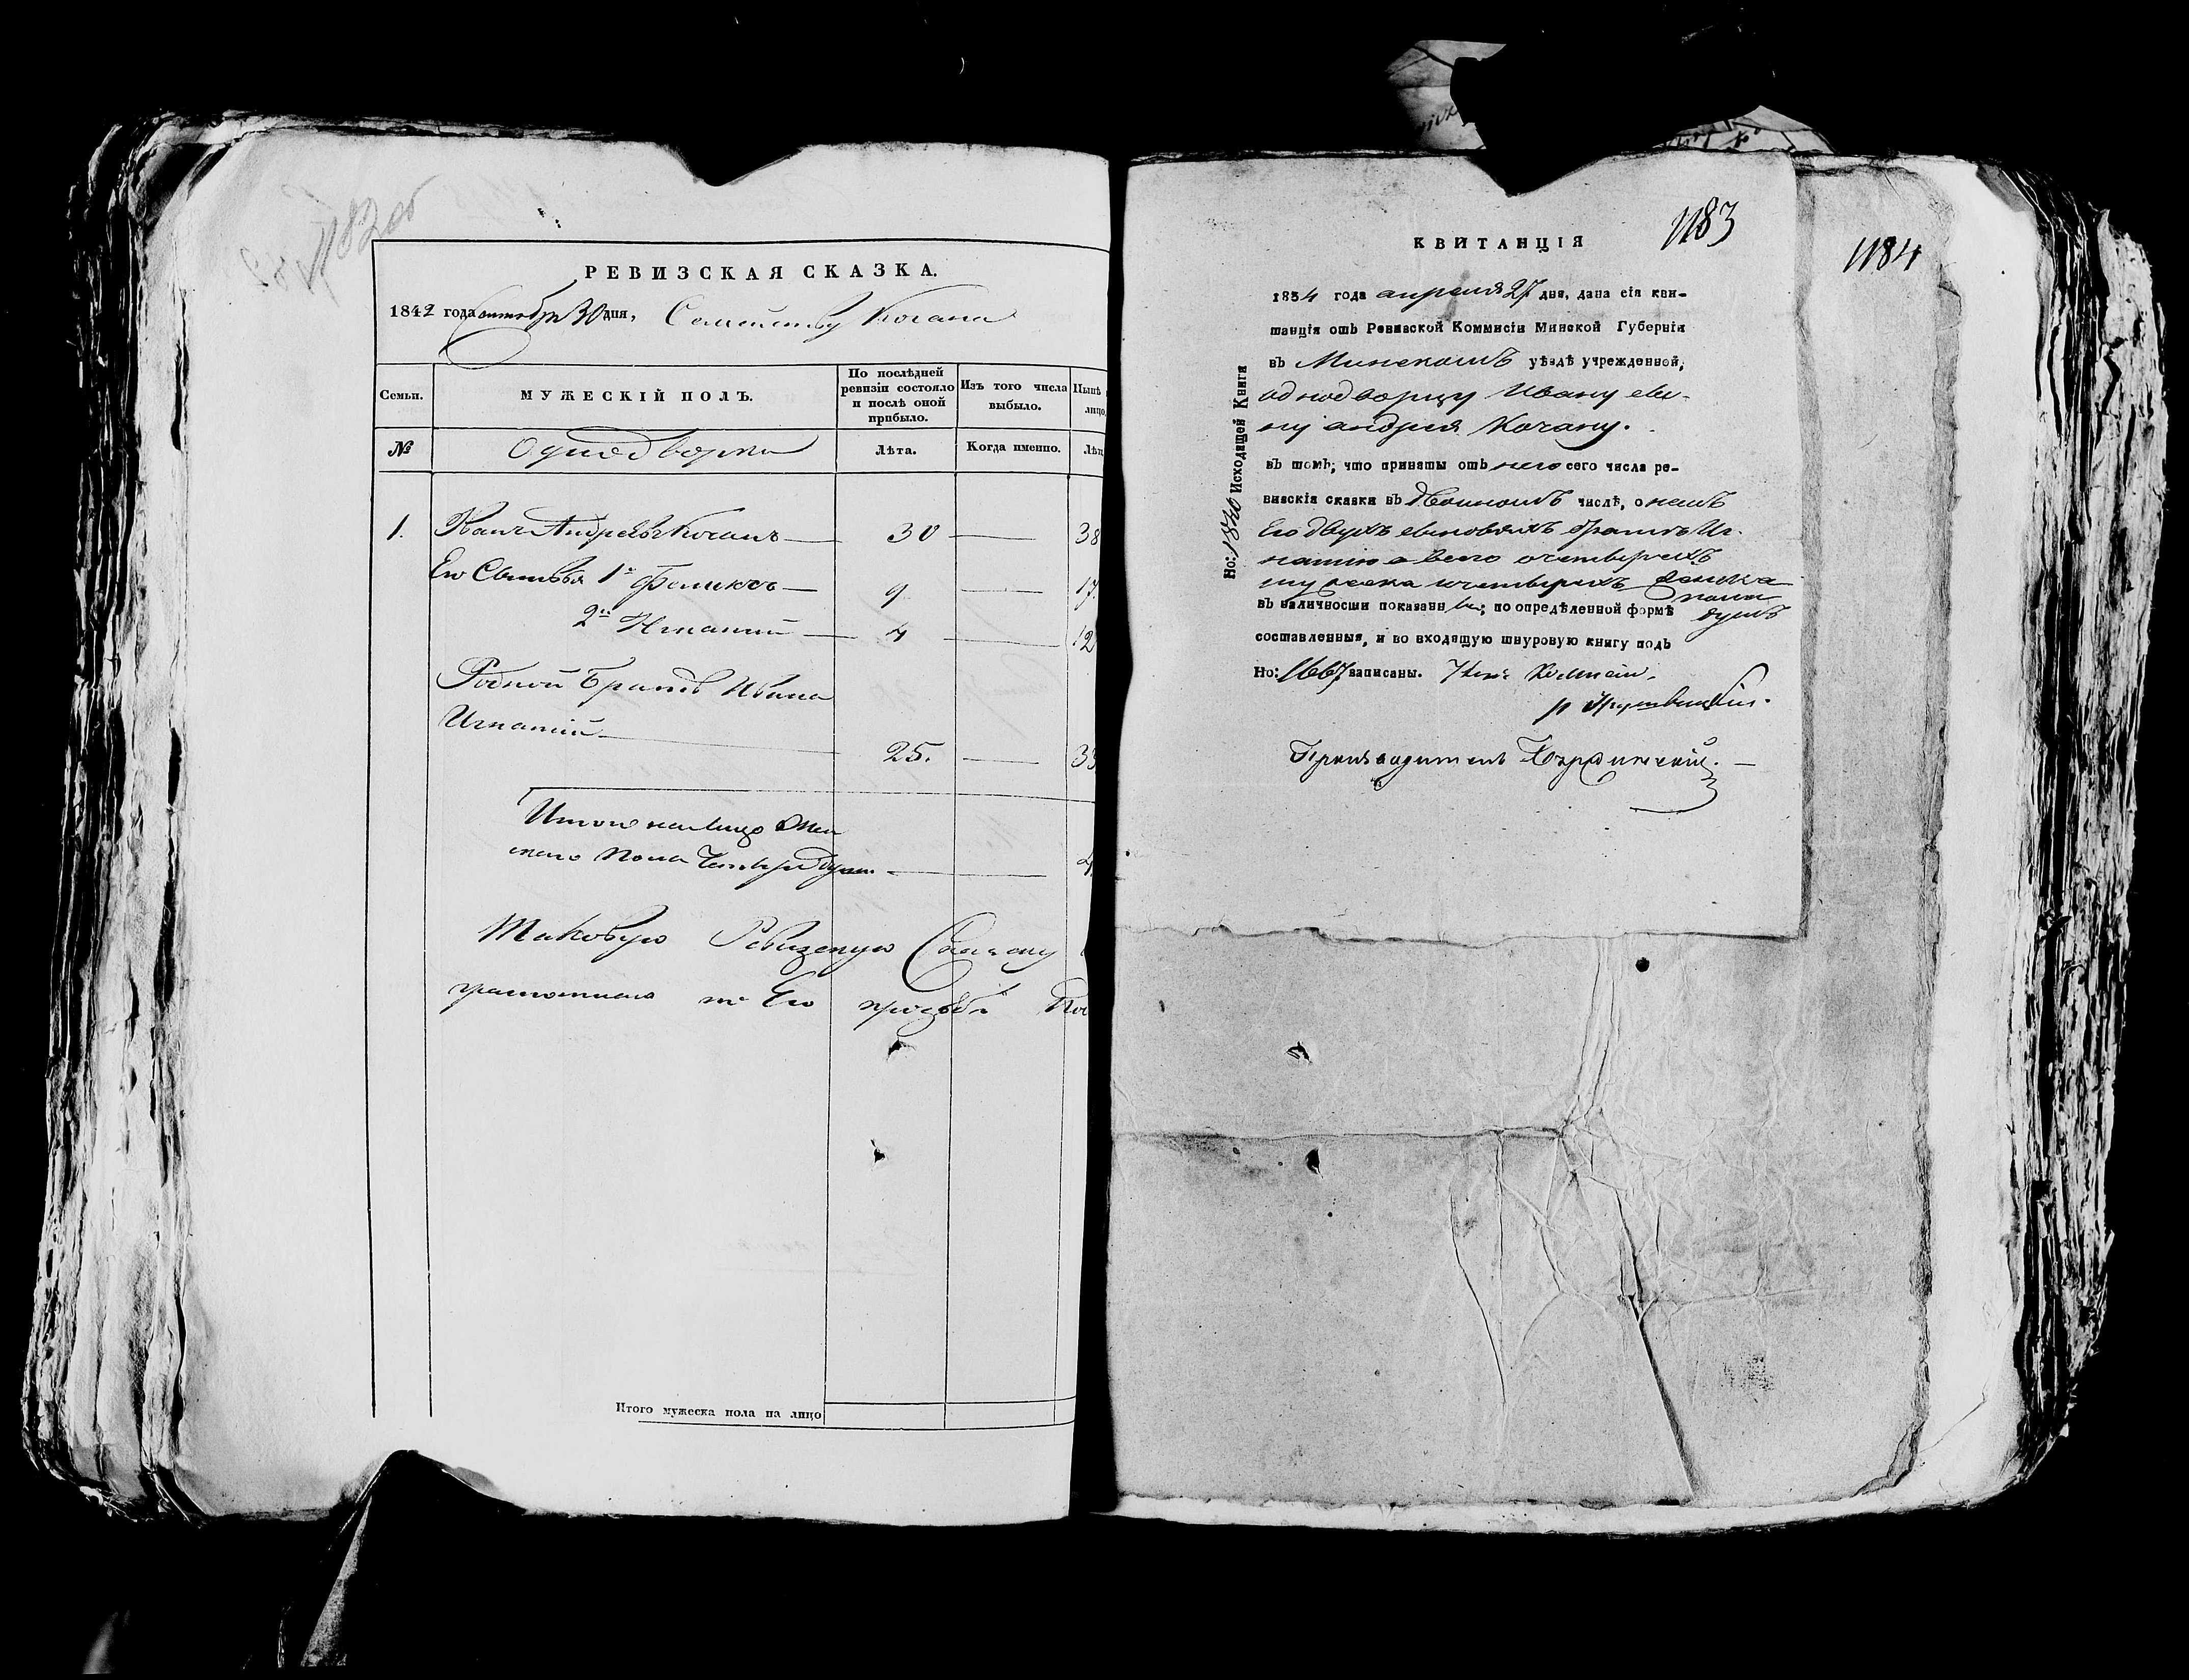 1182 об
РЕВИЗСКАЯ СКАЗКА.
1842 года Сентября 30 дня, Семейству Кочана
Семьи. МУЖЕСКІЙ ПОЛЪ. По послѣдней ревизіи состояло и послѣ оной прибыло. Изъ того числа выбыло. Нынѣ лицо
№ Однодворки Лѣта. Когда именно. Лѣт
1. Иванъ Андреевъ Кочанъ 30 38
Его Сыновья 1й Феликсъ 9 17
2й Игнатій 4 12
Родной Братъ Ивана
Игнатій
25. 33
Итого налицо Муж
скаго Пола Четыре душ 4
Таковую Ревизскую Сказку
грамотнаго по Его прозьбѣ
Итого мужеска пола на лицо
1183
1184
КВИТАНЦІЯ
1834 года апреля 27 дня, дана сія кви-
танція отъ Ревизской Коммисіи Минской Губерніи
въ Минскомъ уѣздѣ учрежденной,
однодворцу Ивану сы-
ну андрея Кочану.
въ томъ; что приняты отъ него сего числа ре-
визскія сказки въ двоиномъ числѣ, о немъ
Его двухъ сыновьяхъ братѣ Иг-
натію а всего очетырехъ
мужеска ичетырехъ женска
пола
душъ
въ наличности показанны; по опредѣленной формѣ
составленныя, и во входящую шнуровую книгу подъ
Но: 1667 записаны.
Производитель
Но: 1830 Исходящей Книги